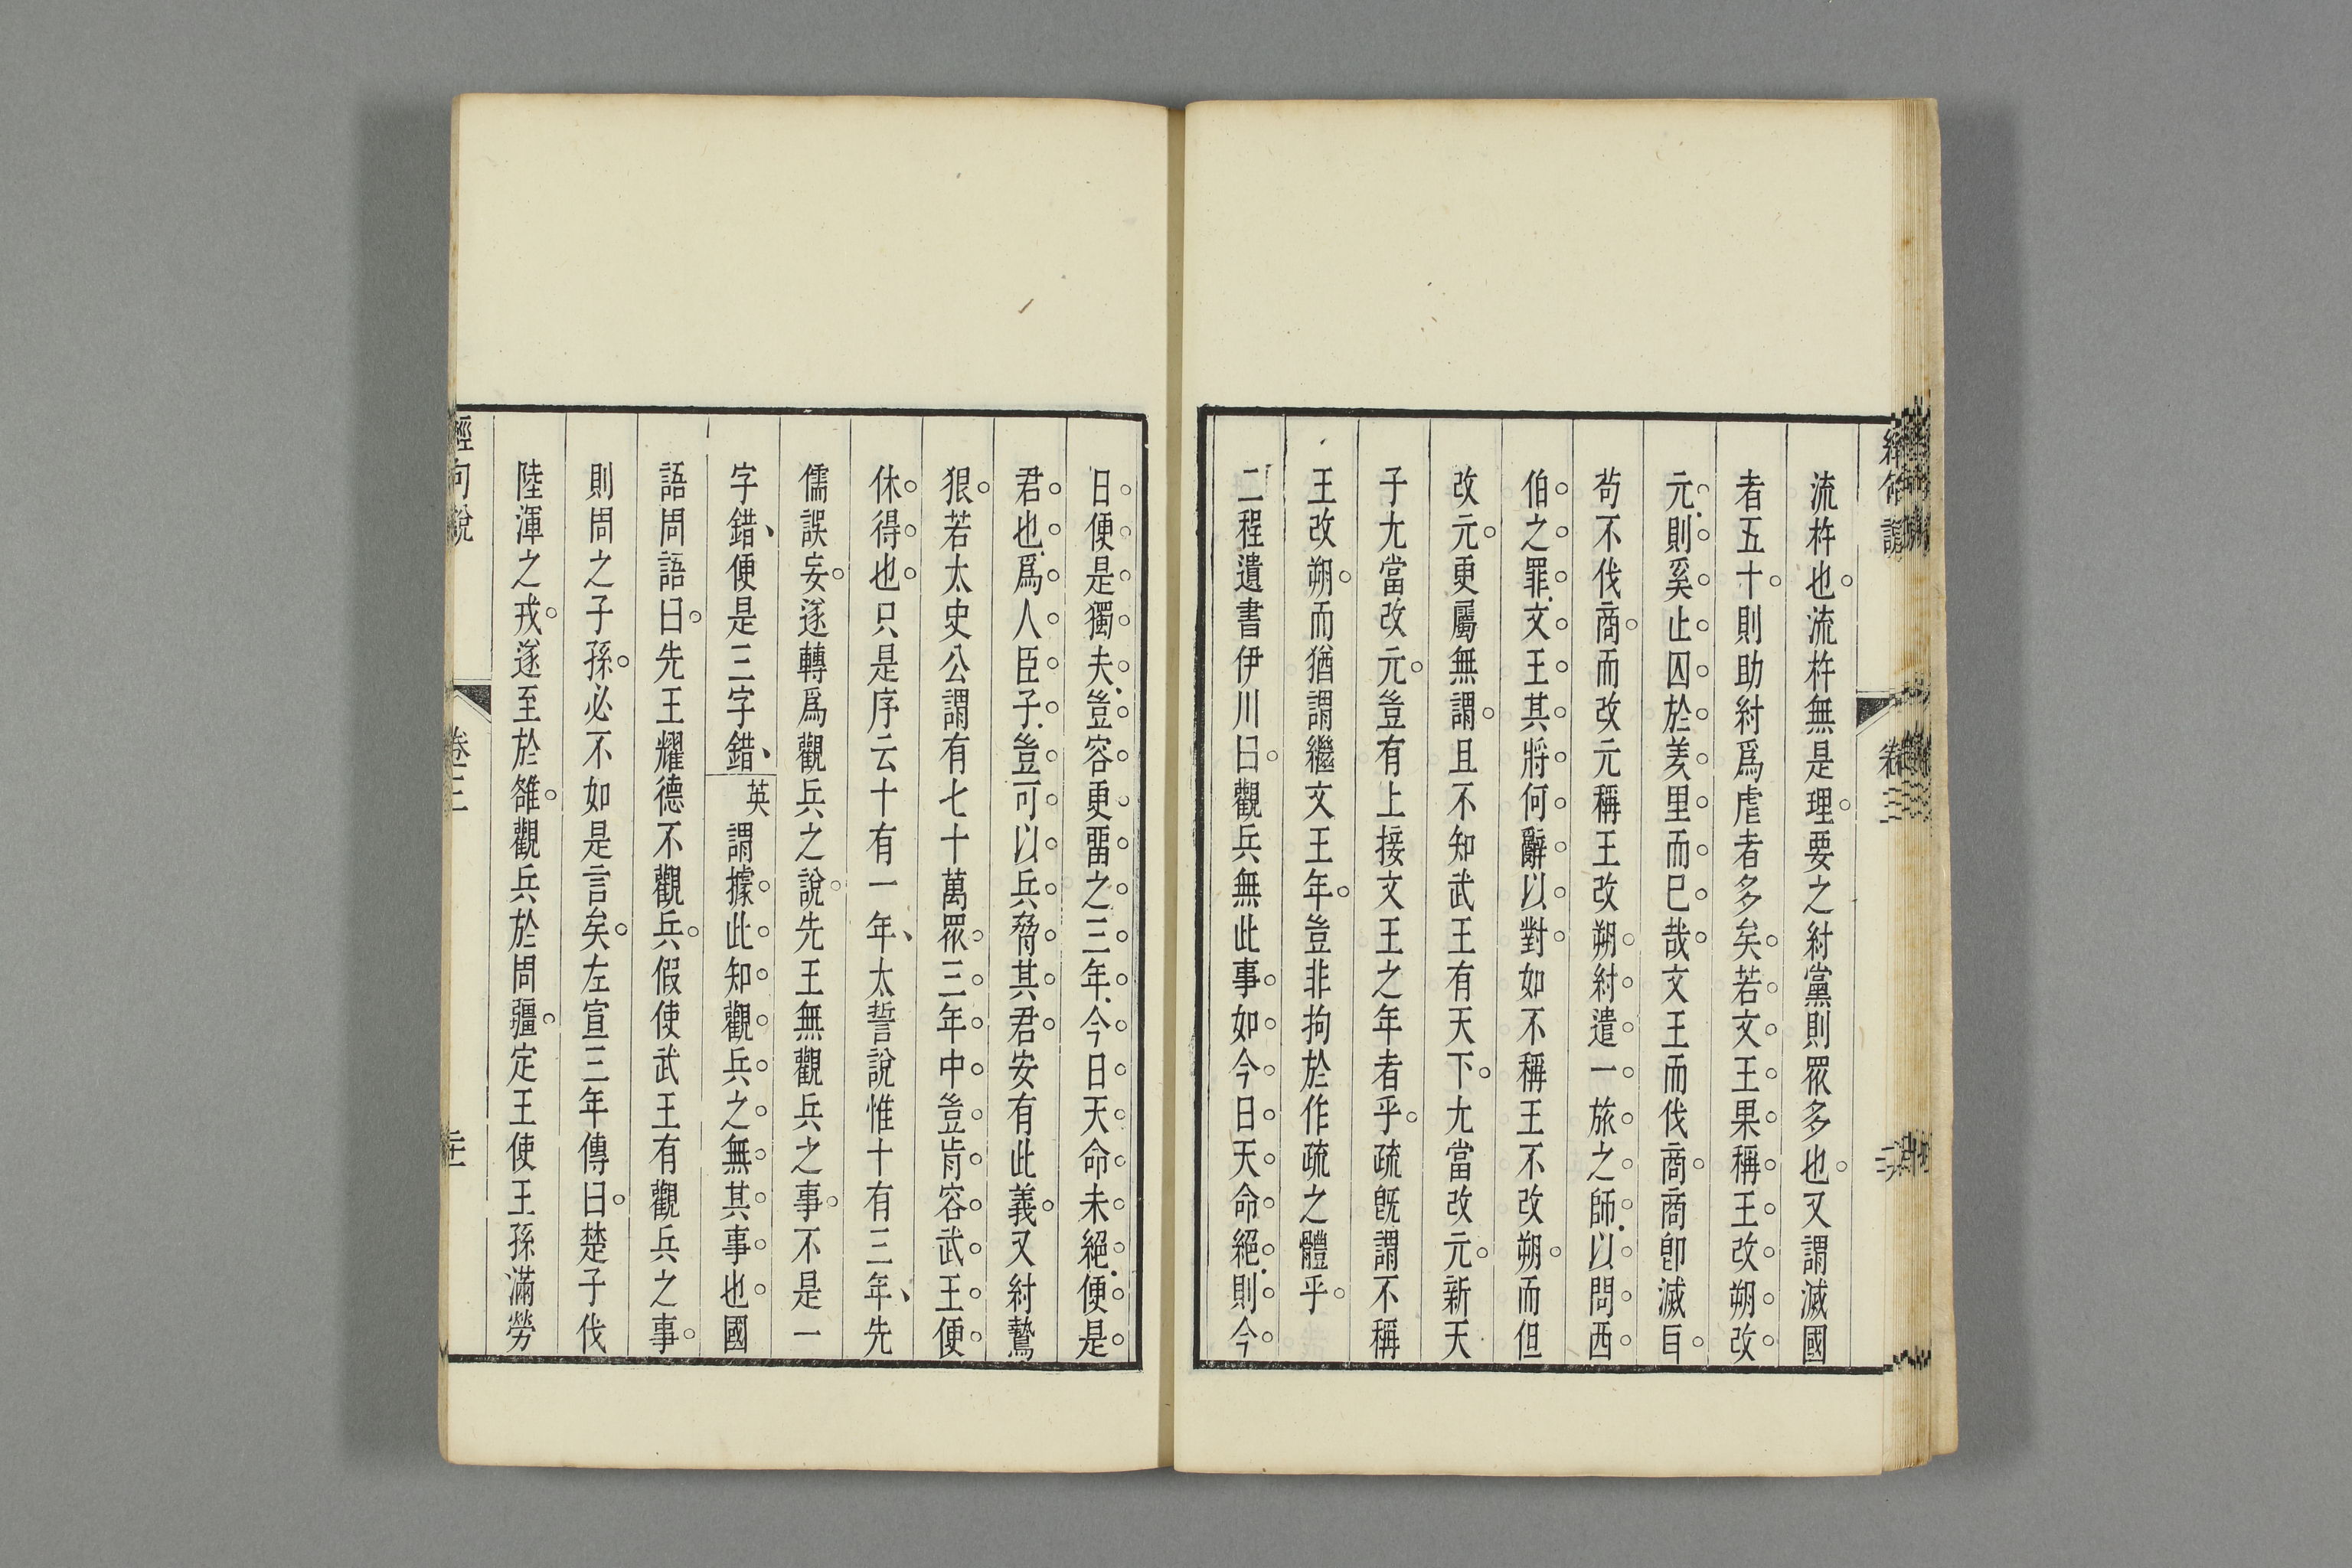 流杵也流杵無是理要之紂黨則眾多也又謂滅國
者五十則助紂爲虐者多矣若文王果稱王改朔改
元則奚止囚於羑里而已哉文王而伐商商卽滅自
茍不伐商而改元稱王改朔紂遣一旅之師以問西
伯之罪文王其將何辭以對如不稱王不改朔而但
改元更屬無謂且不知武王有天下尢當改元新天
子尢當改元豈有上接文王之年者乎疏旣謂不稱
王改朔而猶謂繼文王年豈非拘於作疏之體乎
二程遺書伊川曰觀兵無此事如今日天命絕則今
日便是獨夫豈容更畱之三年今日天命未絕便是
君也爲人臣子豈可以兵脅其君安有此義又紂鷙
狠若太史公謂有七十萬眾三年中豈肯容武王便
休得也只是序云十有一年太誓說惟十有三年先
儒誤妄遂轉爲觀兵之說先王無觀兵之事不是一
字錯便是三字錯英謂據此知觀兵之無其事也國
語周語曰先王耀德不觀兵假使武王有觀兵之事
則周之子孫必不如是言矣左宣三年傳曰楚子伐
陸渾之戎遂至於雒觀兵於周疆定王使王孫滿勞
經句說
卷三